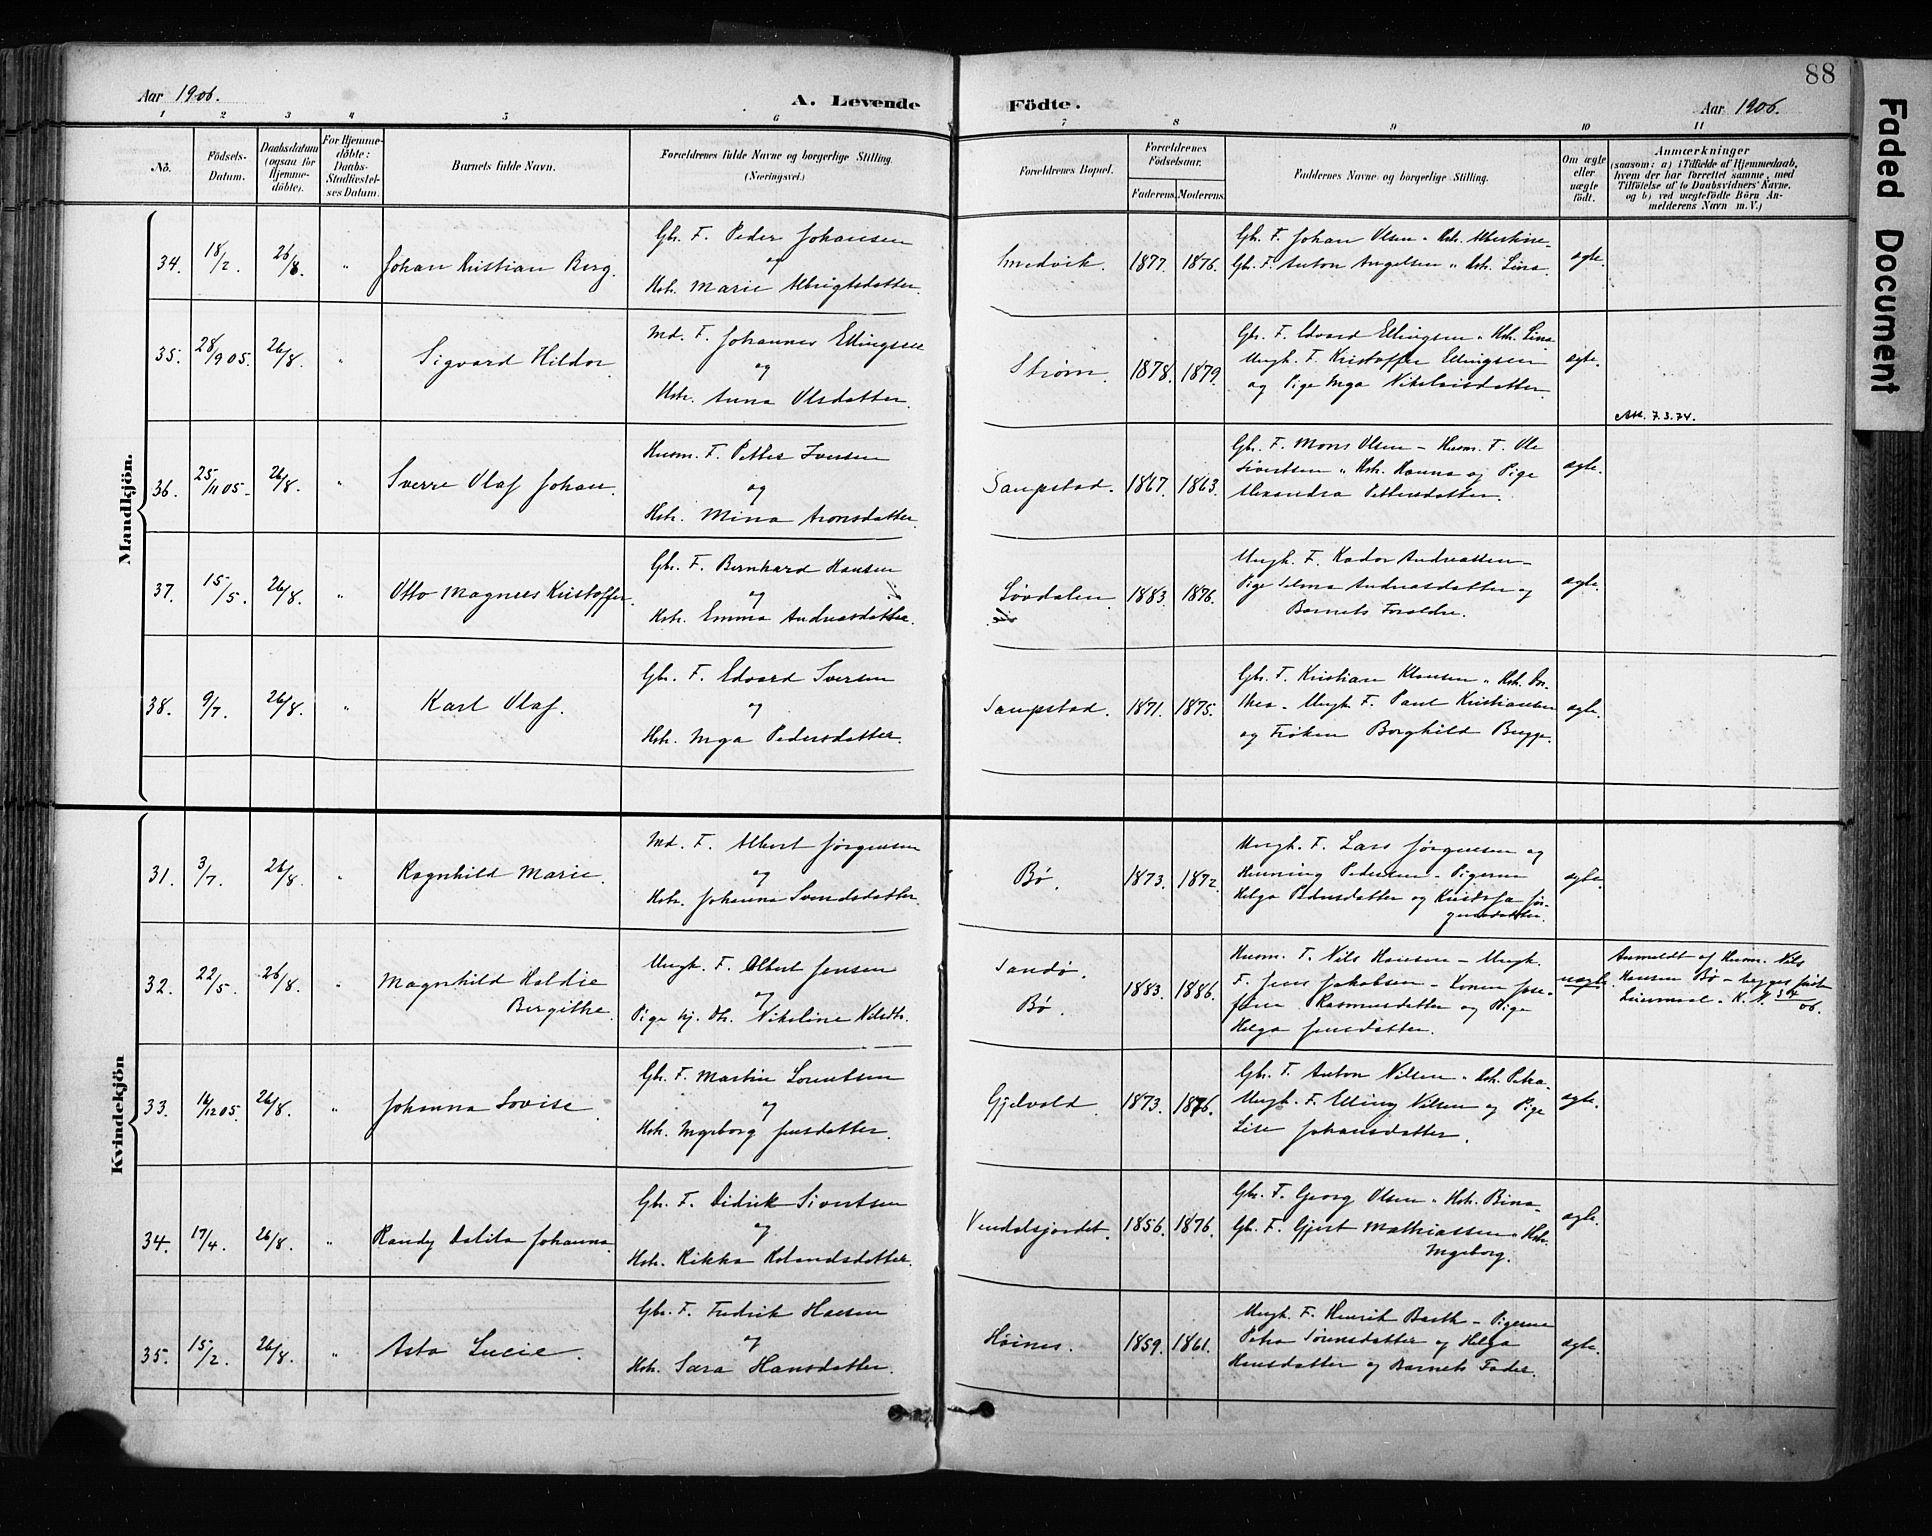 88
Aar 1906.
A. Levende Födte.
Aar 1906.
1 2 3 4 5 6 7 8 9 10 11
No.
Födsels-Datum.
Daabsdatum (ogsaa for Hjemmedöbte).
For Hjemmedöbte: Daabs-Stadfæstelses Datum.
Barnets fulde Navn.
Forældrenes fulde Navne og borgerlige Stilling. (Næringsvei.)
Forældrenes Bopæl.
Forældrenes Födselsaar.
Faderens. Moderens.
Faddernes Navne og borgerlige Stilling.
Om ægte eller uægte födt.
Anmærkninger
(saasom: a) i Tilfælde af Hjemmedaab, hvem der har forrettet samme, med Tilföielse af to Daabsvidners Navne. og b) ved uægtefödte Börn Anmelderens Navn m. V.)
Mandkjön.
34. 18/2. 26/8. " Johan Kristian Berg. Gbr. F. Peder Johansen
og
Hstr. Marie Albrigtsdatter.
Smedvik. 1877. 1876. Gbr. F. Johan Olsen - Hstr. Albertine -
Gbr. F. Anton Angelsen " Hstr. Lina. ægte.
35. 28/9 05. 26/8. " Sigvard Hildor. Md. F. Johannes Ellingsen
og
Hstr. Anna Olsdatter.
Strøm. 1878. 1879. Gbr. F. Edvard Ellingsen " Hstr. Lina
Ungk. F. Kristoffer Ellingsen
og Pige Inga Nikolaisdatter. ægte.
Att. 7.3.74.
36. 25/11 05. 26/8. " Sverre Olaf Johan. Husm. F. Petter Iversen
og
Hstr. Mina Aronsdatter.
Sampstad. 1867. 1863. Gbr. F. Mons Olsen - Husm. F. Ole
Sivertsen " Hstr. Hanna og Pige
Alexandra Pettersdatter. ægte.
37. 15/5. 26/8. " Otto Magnus Kristoffer. Gbr. F. Bernhard Hansen
og
Hstr. Emma Andreasdatter.
Løvdalen 1883. 1876. Ungk. F. Kador Andreassen -
Pige Selma Andreasdatter og
Barnets Forældre. ægte.
38. 9/7. 26/8. " Karl Olaf. Gbr. F. Edvard Iversen
og
Hstr. Inga Pedersdatter.
Sampstad. 1871. 1875. Gbr. F. Kristian Klausen " Hstr. Dor-
thea - Ungk. F. Paul Kristiansen
og Frøken Borghild Bugge. ægte.
Kvindekjön
31. 3/7. 26/8. " Ragnhild Marie. Md. F. Albert Jørgensen
og
Hstr. Johanna Svendsdatter.
Bø. 1873. 1872. Ungk. F. Lars Jørgensen og
Henning Pedersen - Pigerne
Helga Pedersdatter og Kristofa Jør-
gensdatter. ægte.
32. 22/5. 26/8. " Magnhild Haldie
Bergithe. Ungk. F. Albert Jensen
og
Pige hj. Dtr. Nikoline Nilsdtr.
Sandø.
Bø. 1883. 1886. Husm. F. Nils Hansen - Ungk.
F. Jens Jakobsen - Konen Jose-
fine Rasmusdatter og Pige
Helga Jensdatter. uægte.
Anmeldt af Husm. Nils
Hansen Bø - begges første
Leiermaal -
33. 16/12 05. 26/8. " Johanna Lovise. Gbr. F. Martin Lorentsen
og
Hstr. Ingeborg Jensdatter.
Gjelvold. 1873. 1876. Gbr. F. Anton Nilsen " Hstr. Petra -
Ungk. F. Elling Nilsen og Pige
Lise Johansdatter. ægte.
34. 17/4. 26/8. " Randy Dalila Johanna. Gbr. F. Didrik Sivertsen
og
Hstr. Rikka Rolandsdatter.
Vendalsjordet. 1856. 1876. Gbr. F. Georg Olsen " Hstr. Bina -
Gbr. F. Gjert Mathiassen " Hstr.
Ingeborg. ægte.
35. 15/2. 26/8. " Asta Lucie. Gbr. F. Fredrik Hansen
og
Hstr. Sara Hansdatter.
Høines. 1859. 1861. Ungk. F. Henrik Barth - Pigerne
Petra Sørensdatter og Helga
Hansdatter og Barnets Fader. ægte.
Faded Document